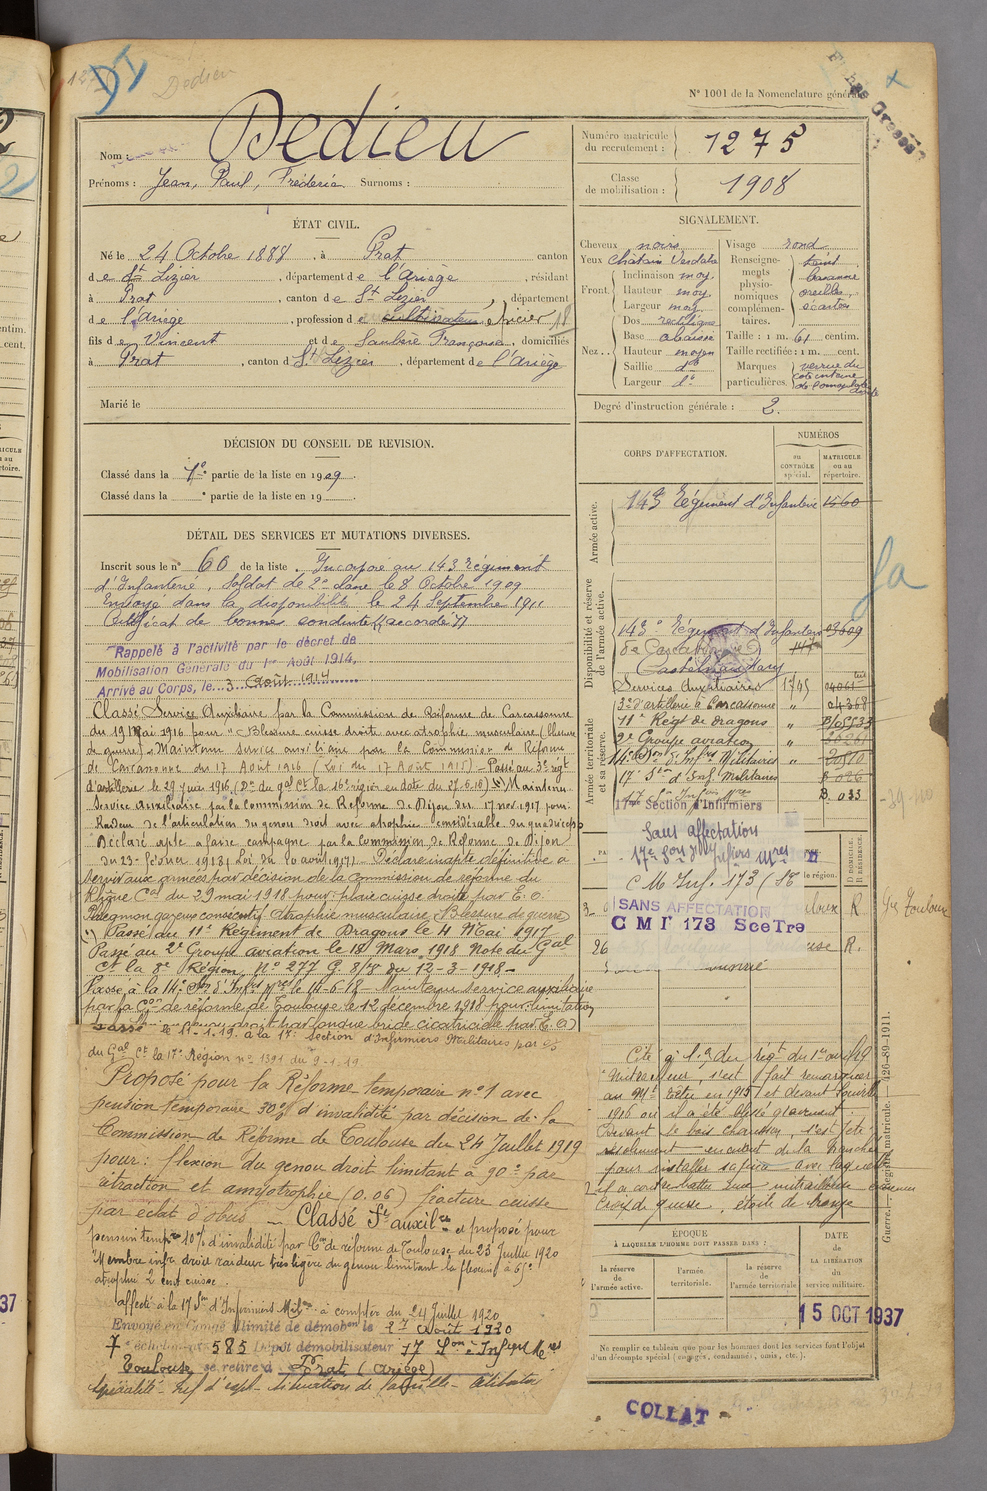 Dedieu
N° 1001 de la Nomenclature générale
Nom : Dedieu
Prénoms : Jean, Paul, Frédéric Surnoms :
Numéro matricule du recrutement : 1275
Classe de mobilisation : 1908
ÉTAT CIVIL.
Né le 24 Octobre 1888, à Prat canton
de St Lizier, département de l'Ariège, résidant
à Prat, canton de St Lizier, département
de l'Ariège, profession de cultivateur epicier
fils de Vincent et de Françoise, domiciliés
à Prat, canton de St Lizier, département de l'Ariège
Marié le
SIGNALEMENT.
Cheveux noirs
Yeux Chatain Verdatre
Front. Inclinaison moy.
Hauteur moy.
Largeur moy.
Nez. Dos rectiligne
Base abaissé
Hauteur moyen
Saillie do
Largeur do
Visage rond
Renseignements physionomiques complémentaires. teint basanné oreilles écartées
Taille : 1 m. 61 centim.
Taille rectifiée : 1 m. cent.
Marques particulières. verrue du coté interne de l'omoplate droite
Degré d'instruction générale : 2.
DÉCISION DU CONSEIL DE REVISION.
Classé dans la 1e partie de la liste en 1909.
Classé dans la partie de la liste en 19
DÉTAIL DES SERVICES ET MUTATIONS DIVERSES.
Inscrit sous le n° 60 de la liste. Incorporé au 143 Régiment
d'Infanterie, soldat de 2e classe le 8 Octobre 1909
Envoyé dans la disponibilité le 24 Septembre 1911
Certificat de bonne conduite "accordé"
Rappelé à l'activité par le décret de
Mobilisation Générale du 1er Août 1914.
Arrivé au Corps, le 3 Août 1914
Classé Service Auxiliaire par la Commission de Réforme de Carcassonne
du 19 Mai 1916 pour "Blessure cuisse droite avec atrophie musculaire (blessure
de guerre)". Maintenu service auxiliaire par la Commission de Réforme
de Carcassonne du 17 Août 1916 (Loi du 17 Août 1915) - Passé au 3e régt
d'artillerie le 29 juin 1916 Maintenu
Service auxiliaire par la Commission de Réforme de Dijon du 17 nov. 1917 pour
Raideur de l'articulation du genou droit avec atrophie considérable du quadriceps
Déclaré apte à faire campagne par la Commission de Réforme de Dijon
du 23 février 1918 (Loi du 20 août 1917) - Déclaré inapte définitive à
servir aux armées par décision de la commission de réforme du
29 mai 1918 pour : plaie cuisse droite par E. O.
Phlegmon gazeux consécutif. Atrophie musculaire (Blessure de guerre)
(1) Passé au 11e Régiment de Dragons le 4 Mai 1917
Passé au 2e Groupe aviation le 18 Mars 1918 Note du Gal
Ct la 8e Région N° 277 G. 8/7 du 12-3-1918 -
Passé à la 14e Son d'Infrs Mres le 14-6-18 - Maintenu service auxiliaire
par la Con de réforme de Toulouse le 12 décembre 1918 pour : limitation
droit par longue bride cicatricielle par E. O)
Passé le 11-1-19. à la 17e Section d'Infirmiers Militaires par
du Gal Ct la 17e Région n° 1391 du 9-1-19
Proposé pour la Réforme temporaire n° 1 avec
pension temporaire 30% d'invalidité par décision de la
Commission de Réforme de Toulouse du 24 Juillet 1919
pour : flexion du genou droit limitant à 90° par
attraction et amyotrophie (0.06) fracture cuisse
par éclat d'obus. - Classé St auxilre et proposé pour
pension tempre 10% d'invalidité par Con de réforme de Toulouse du 23 Juillet 1920
"Membre infr droit raideur très légère du genou limitant la flexion à 65°
atrophie 2 cent cuisse.
affecté à la 17 Son d'Infirmiers Milres à compter du 24 Juillet 1920
Envoyé en Congé illimité de démobon le 27 Août 1920
7e échelon n° 585 Dépôt démobilisateur 17 Son d'Infrs Mres
Toulouse se retire à Prat (Ariège)
CORPS D'AFFECTATION.
NUMÉROS
au CONTRÔLE spécial.
MATRICULE ou au répertoire.
Armée active.
143e Régiment d'Infanterie 1560
Disponibilité et réserve de l'armée active.
143e Régiment d'Infanterie 03609
de Carcassonne
Castelnaudary
Services Auxiliaires 1745
3e d'artillerie à Carcassonne " 04368
11e Régt de dragons "
2e Groupe aviation "
14e Son d'Infrs Militaires "
17e Son d'Inf. Militaires
Armée territoriale et sa réserve.
17me Section d'Infirmiers B. 033
Sans affectation
17e Son d'Infirmiers Mres
C M Inf. 173 / St
SANS AFFECTATION
CMI 173 SceTre
DOMICILE, RÉSIDENCE
R
R.
Cité à l'O. du régt du 1er avril 19
"Mitrailleur, s'est fait remarquer
au Mt Têtu en 1915 et devant Souville
1916 où il a été blessé grièvement.
Devant le bois chausson, s'est jeté
résolument en avant de la tranchée
pour installer sa pièce avec laquelle
il a contrebattu une mitrailleuse ennemie
Croix de guerre, étoile de bronze
ÉPOQUE
À LAQUELLE L'HOMME DOIT PASSER DANS :
la réserve de l'armée active.
l'armée territoriale.
la réserve de l'armée territoriale
DATE de LA LIBÉRATION du service militaire.
15 OCT 1937
Ne remplir ce tableau que pour les hommes dont les services font l'objet
d'un décompte spécial (engagés, condamnés, omis, etc.).
Guerre. — Registre matricule. — 126-89-1911.
COLLAT